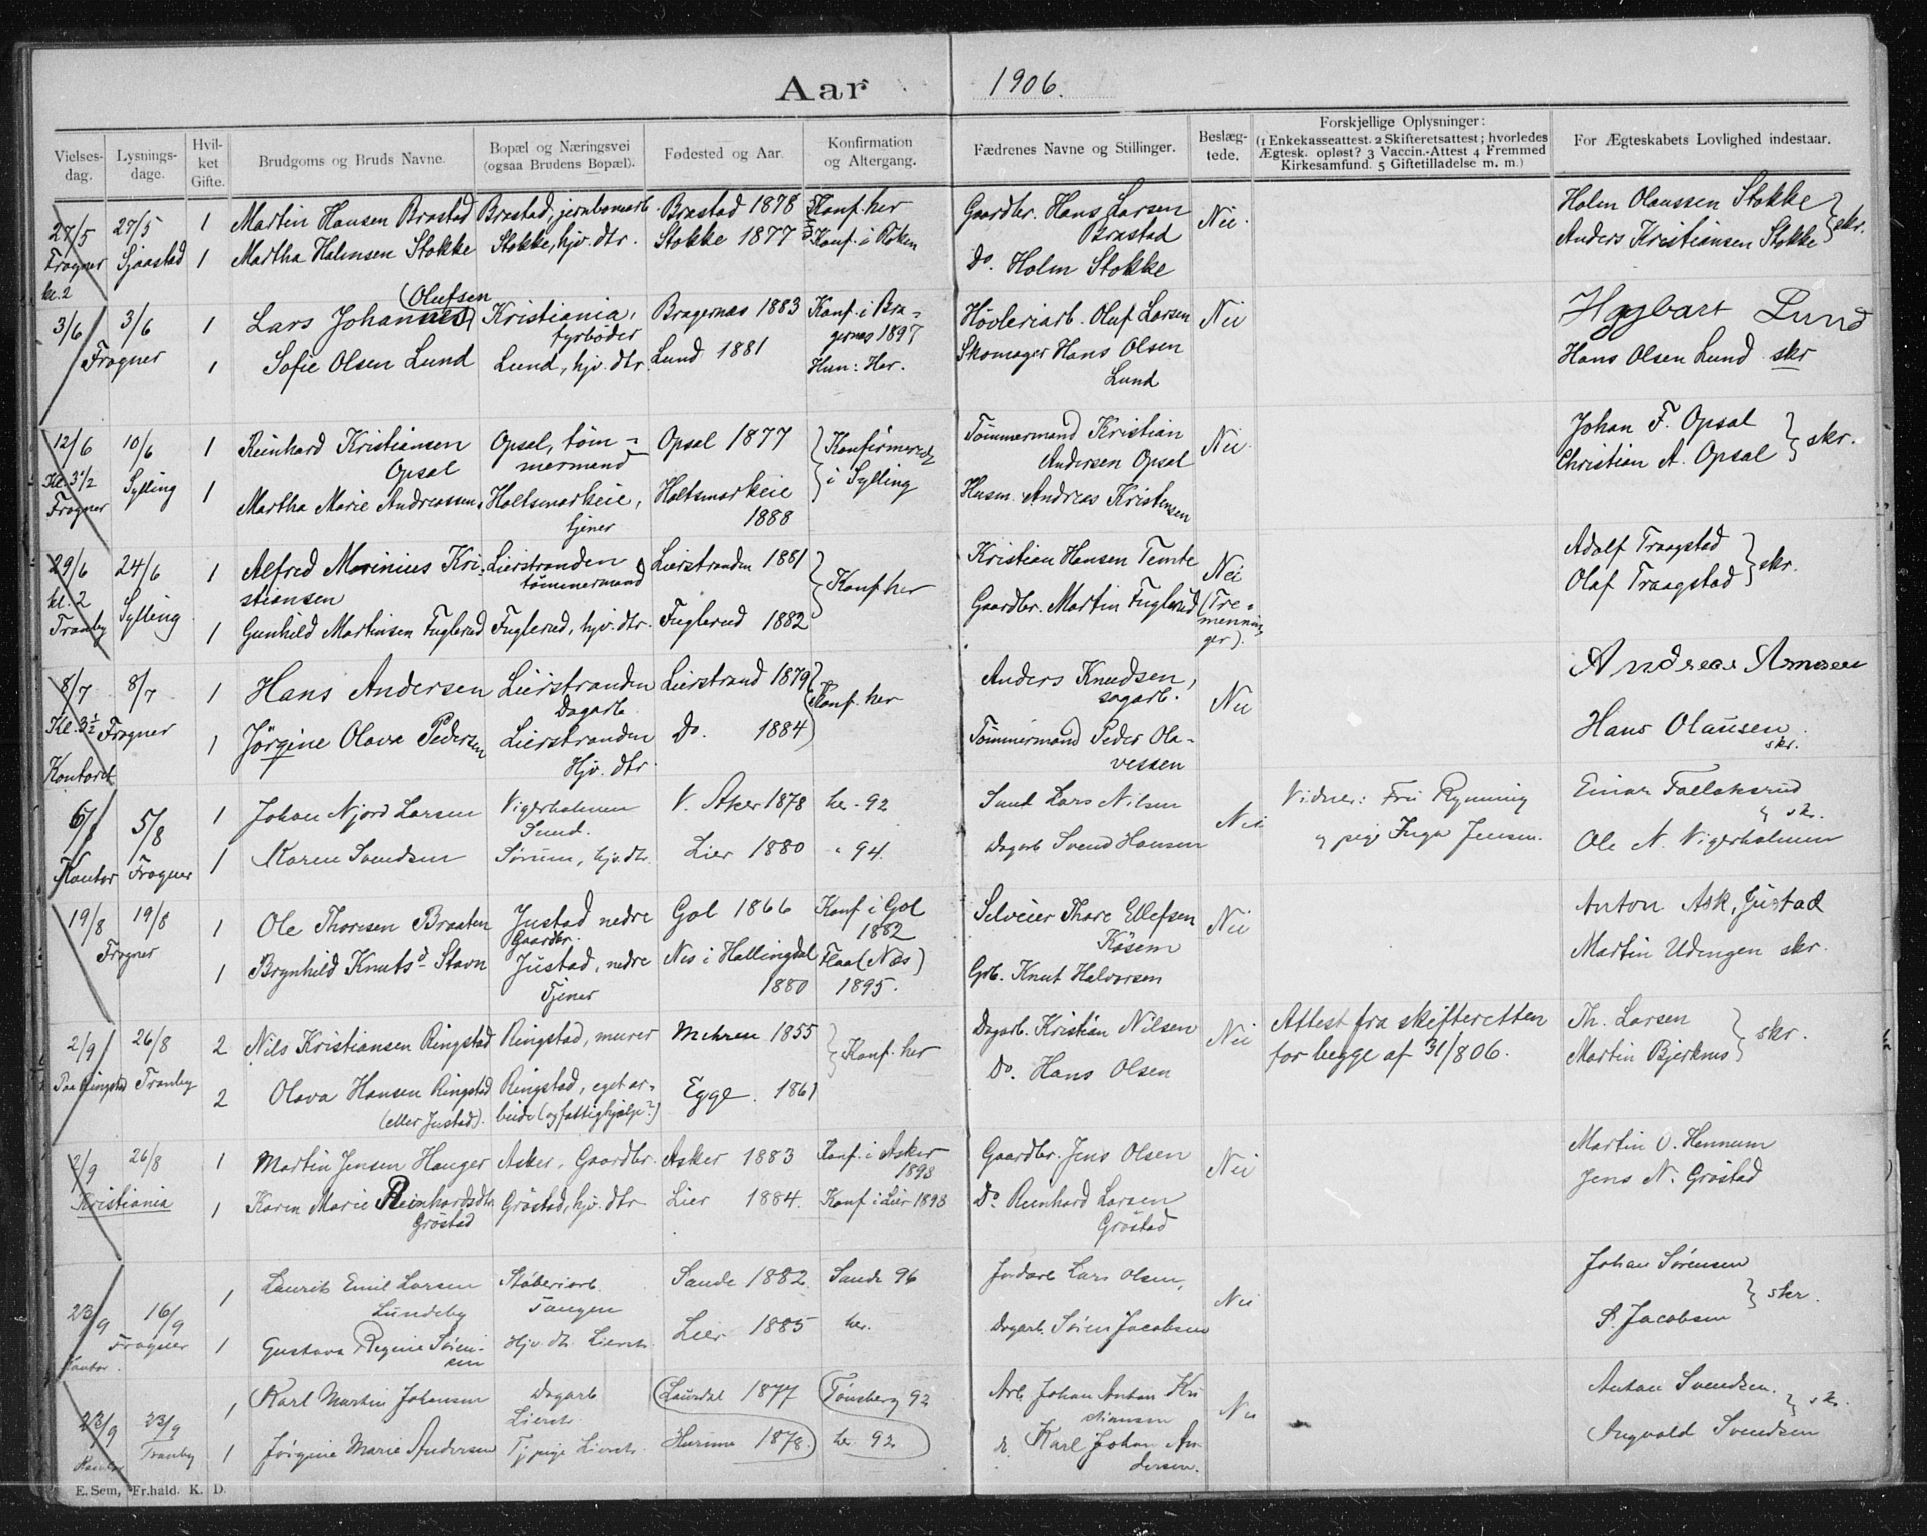 Aar 1906.
Vielses-dag. Lysnings-dage. Hvil-ket Gifte. Brudgoms og Bruds Navne. Bopæl og Næringsvei (ogsaa Brudens Bopæl). Fødested og Aar. Konfirmation og Altergang. Fædrenes Navne og Stillinger. Beslæg-tede. Forskjellige Oplysninger: (1 Enkekasseattest. 2 Skifteretsattest; hvorledes Ægtesk. opløst? 3 Vaccin.-Attest 4 Fremmed Kirkesamfund. 5 Giftetilladelse m. m.) For Ægteskabets Lovlighed indestaar.
27/5 Frogner kl. 2 27/5 Sjaastad
1 Martin Hansen Brastad Brastad, jernbanearb. Brastad 1878 Konf. her Gaardbr. Hans Larsen Brastad Nei. Holm Olaussen Stokke
1 Martha Halmsen Stokke Stokke, hjv. dtr. Stokke 1877 Konf. i Røken Do. Holm Stokke Anders Kristiansen Stokke } skr.
3/6 3/6 Frogner
1 Lars Johannes (Olufsen Kristiania, fyrbøder Bragernæs 1883 Konf. i Bra-gernæs 1897 Høvleriarb. Oluf Larsen Nei Hagbart Lund
1 Sofie Olsen Lund Lund, hjv. dtr. Lund 1881 Hun: Her. Skomager Hans Olsen Lund Hans Olsen Lund skr
12/6 Kl. 3 1/2 Frogner 10/6 Sylling
1 Reinhard Kristiansen Opsal Opsal, tøm-mermand Opsal 1877 } Konfirmered i Sylling Tømmermand Kristian Andersen Opsal Nei. Johan F. Opsal
1 Martha Marie Andreassen, Holtsmarkeie, tjener Holtsmarkeie 1888 Husm. Andreas Kristensen Christian A. Opsal } skr.
29/6 kl. 2 Tranby 24/6 Sylling
1 Alfred Marinius Kri-stiansen Lierstranden tømmermand Lierstranden 1881 } Konf. her Kristian Hansen Temte Nei (Tre-mennin-ger). Adolf Traagstad
1 Gunhild Martinsen Fuglerud Fuglerud, hjv. dtr. Fuglerud 1882 Gaardbr. Martin Fuglerud Olaf Traagstad } skr.
8/7 Kl. 3 1/2 Kontoret 8/7 Frogner
1 Hans Andersen Lierstranden Dagarb. Lierstrand 1879 } Konf. her Anders Knudsen, sagarb. Nei Andreas
1 Jørgine Olava Pedersen Lierstranden Hjv. dtr. Do. 1884 Tømmermand Peder Ola-vessen Hans Olausen skr.
6/8 Kontor 5/8 Frogner
1 Johan Njord Larsen Vigerholmen Sund. V. Aker 1878 her - 92 Sund Lars Nilsen Nei Vidner: Fru Rynning Einar
1 Karen Svendsen Sørum, hjv. dtr. Lier 1880 " 94. Dagarb. Svend Hansen og pige Inga Jensen. Ole N. Vigerholmen } sk.
19/8 19/8 Frogner
1 Ole Thoresen Braaten Justad nedre Gaardbr. Gol 1866 Konf i Gol 1882 Selveier Thore Ellefsen Nei Anton Ask, Justad
1 Brynhild Knutsd. Stavn Justad, nedre Tjener Nes i Hallingdal 1880 Flaa (Næs) 1895. Grb. Knut Halvorsen Martin Udengen skr.
2/9 Paa Ringstad 26/8 Tranby
2 Nils Kristiansen Ringstad Ringstad, murer Mehren 1855 } Konf. her Dagarb. Kristian Nilsen Nei Attest fra skifteretten Th. Larsen
2 Olava Hansen Ringstad (eller Justad). Ringstad, eget ar-beide (og fattighjelp?) Egge. 1861 Do. Hans Olsen for begge af 31/8 06. Martin Bjerknes } skr.
2/9 26/8 Kristiania
1 Martin Jensen Hauger Asker, Gaardbr. Asker 1883 Konf. i Asker 1898 Gaardbr. Jens Olsen Nei Martin O. Hennum
1 Karen Marie Reinhardsdtr. Grøstad Grøstad, hjv. dtr Lier 1884. Konf i Lier 1898 Do. Reinhard Larsen Grøstad Jens N. Grøstad
23/9 Kontor. 16/9 Frogner
1 Laurits Emil Larsen Lundeby Støberiarb. Tangen Sande 1882 Sande 96 Jordarb Lars Olsen, Nei Johan Sørensen
1 Gustava Regine Søren-sen Hjv. dtr. Lierstr. Lier 1885 her. Dagarb. Søren Jacobsen S. Jacobsen } skr.
23/9 Kontor 23/9 Tranby
1 Karl Martin Johansen Dagarb Lierstr. (Laurdal 1877 (Tønsberg 92 Arb. Johan Anton Kri-stiansen Nei Anton Svendsen.
1 Jørgine Marie Andersen Tj. pige Lierstr. Hurum 1878.) her. 92 Karl Johan An-dersen. Ingvald Svendsen } sk.
E. Sem, Fr.hald. K. D.